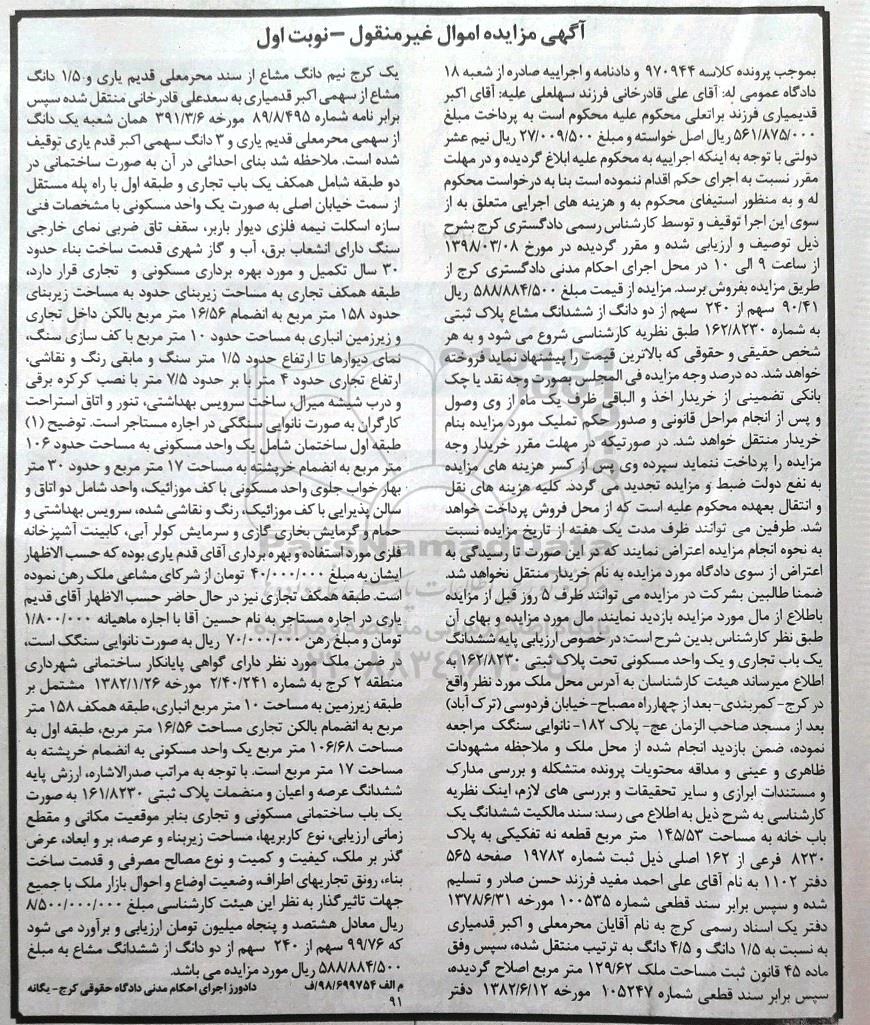 آگهی مزایده اموال غیر منقول – نوبت اول
بموجب پرونده کلاسه ۹۷۰۹۴۴ و دادنامه و اجراییه صادره از شعبه ۱۸
دادگاه عمومی له: آقای علی قادرخانی فرزند سهلعلی علیه: آقای اکبر
قدیمیاری فرزند براتعلی محکوم علیه محکوم است به پرداخت مبلغ
۵۶۱/۸۷۵/۰۰۰ ریال اصل خواسته و مبلغ ۲۷/۰۰۹/۵۰۰ ریال نیم عشر
دولتی با توجه به اینکه اجراییه به محکوم علیه ابلاغ گردیده و در مهلت
مقرر نسبت به اجرای حکم اقدام ننموده است بنا به درخواست محکوم
له و به منظور استیفای محکوم به و هزینه های اجرایی متعلق به از
سوی این اجرا توقیف و توسط کارشناس رسمی دادگستری کرج بشرح
ذیل توصیف و ارزیابی شده و مقرر گردیده در مورخ ۱۳۹۸/۰۳/۰۸
از ساعت ۹ الی ۱۰ در محل اجرای احکام مدنی دادگستری کرج از
طریق مزایده بفروش برسد. مزایده از قیمت مبلغ ۵۸۸/۸۸۴/۵۰۰ ریال
۹۰/۴۱ سهم از ۲۴۰ سهم از دو دانگ از ششدانگ مشاع پلاک ثبتی
به شماره ۱۶۲/۸۲۳۰ طبق نظریه کارشناسی شروع می شود و به هر
شخص حقیقی و حقوقی که بالاترین قیمت را پیشنهاد نماید فروخته
خواهد شد. ده درصد وجه مزایده فی المجلس بصورت وجه نقد یا چک
بانکی تضمینی از خریدار اخذ و الباقی ظرف یک ماه از وی وصول
و پس از انجام مراحل قانونی و صدور حکم تملیک مورد مزایده بنام
خریدار منتقل خواهد شد. در صورتیکه در مهلت مقرر خریدار وجه
مزایده را پرداخت ننماید سپرده وی پس از کسر هزینه های مزایده
به نفع دولت ضبط و مزایده تجدید می گردد. کلیه هزینه های نقل
و انتقال بعهده محکوم علیه است که از محل فروش پرداخت خواهد
شد. طرفین می توانند ظرف مدت یک هفته از تاریخ مزایده نسبت
به نحوه انجام مزایده اعتراض نمایند که در این صورت تا رسیدگی به
اعتراض از سوی دادگاه مورد مزایده به نام خریدار منتقل نخواهد شد.
ضمنا طالبین بشرکت در مزایده می توانند ظرف ۵ روز قبل از مزایده
باطلاع از مال مورد مزایده بازدید نمایند. مال مورد مزایده و بهای آن
طبق نظر کارشناس بدین شرح است: در خصوص ارزیابی پایه ششدانگ
یک باب تجاری و یک واحد مسکونی تحت پلاک ثبتی ۱۶۲/۸۲۳۰ به
اطلاع میرساند هیئت کارشناسان به آدرس محل ملک مورد نظر واقع
در کرج- کمربندی- بعد از چهارراه مصباح- خیابان فردوسی (ترک آباد)
بعد از مسجد صاحب الزمان عج- پلاک ۱۸۲- نانوایی سنگک مراجعه
نموده، ضمن بازدید انجام شده از محل ملک و ملاحظه مشهودات
ظاهری و عینی و مداقه محتویات پرونده متشکله و بررسی مدارک
و مستندات ابرازی و سایر تحقیقات و بررسی های لازم، اینک نظریه
کارشناسی به شرح ذیل به اطلاع می رسد: سند مالکیت ششدانگ یک
باب خانه به مساحت ۱۴۵/۵۳ متر مربع قطعه نه تفکیکی به پلاک
۸۲۳۰ فرعی از ۱۶۲ اصلی ذیل ثبت شماره ۱۹۷۸۲ صفحه ۵۶۵
دفتر ۱۱۰۲ به نام آقای علی احمد مفید فرزند حسن صادر و تسلیم
شده و سپس برابر سند قطعی شماره ۱۰۰۵۳۵ مورخه ۱۳۷۸/۶/۳۱
دفتر یک اسناد رسمی کرج به نام آقایان محرمعلی و اکبر قدمیاری
به نسبت به ۱/۵ دانگ و ۴/۵ دانگ به ترتیب منتقل شده، سپس وفق
ماده ۴۵ قانون ثبت مساحت ملک ۱۲۹/۶۲ متر مربع اصلاح گردیده،
سپس برابر سند قطعی شماره ۱۰۵۲۴۷ مورخه ۱۳۸۲/۶/۱۲ دفتر
یک کرج نیم دانگ مشاع از سند محرمعلی قدیم یاری و ۱/۵ دانگ
مشاع از سهمی اکبر قدمیاری به سعدعلی قادرخانی منتقل شده سپس
برابر نامه شماره ۸۹/۸/۴۹۵ مورخه ۳۹۱/۳/۶ همان شعبه یک دانگ
از سهمی محرمعلی قدیم یاری و ۳ دانگ سهمی اکبر قدم یاری توقیف
شده است. ملاحظه شد بنای احداثی در آن به صورت ساختمانی در
دو طبقه شامل همکف یک باب تجاری و طبقه اول با راه پله مستقل
از سمت خیابان اصلی به صورت یک واحد مسکونی با مشخصات فنی
سازه اسکلت نیمه فلزی دیوار باربر، سقف تاق ضربی نمای خارجی
سنگ دارای انشعاب برق، آب و گاز شهری قدمت ساخت بناء حدود
۳۰ سال تکمیل و مورد بهره برداری مسکونی و تجاری قرار دارد،
طبقه همکف تجاری به مساحت زیربنای حدود به مساخت زیربنای
حدود ۱۵۸ متر مربع به انضمام ۱۶/۵۶ متر مربع بالکن داخل تجاری
و زیرزمین انباری به مساحت حدود ۱۰ متر مربع با کف سازی سنگ،
نمای دیوارها تا ارتفاع حدود ۱/۵ متر سنگ و مابقی رنگ و نقاشی،
ارتفاع تجاری حدود ۴ متر با بر حدود ۷/۵ متر با نصب کرکره برقی
و درب شیشه میرال، ساخت سرویس بهداشتی، تنور و اتاق استراحت
کارگران به صورت نانوایی سنگکی در اجاره مستاجر است. توضیح (۱)
طبقه اول ساختمان شامل یک واحد مسکونی به مساحت حدود ۱۰۶
متر مربع به انضمام خرپشته به مساحت ۱۷ متر مربع و حدود ۳۰ متر
بهار خواب جلوی واحد مسکونی با کف موزائیک، واحد شامل دو اتاق و
سالن پذیرایی با کف موزائیک، رنگ و نقاشی شده، سرویس بهداشتی و
حمام و گرمایش بخاری گازی و سرمایش کولر آبی، کابینت آشپزخانه
فلزی مورد استفاده و بهره برداری آقای قدم یاری بوده که حسب الاظهار
ایشان به مبلغ ۴۰/۰۰۰/۰۰۰ تومان از شرکای مشاعی ملک رهن نموده
است. طبقه همکف تجاری نیز در حال حاضر حسب الاظهار آقای قدیم
یاری در اجاره مستاجر به نام حسین آقا با اجاره ماهیانه ۱/۸۰۰/۰۰۰
تومان و مبلغ رهن ۷۰/۰۰۰/۰۰۰ ریال به صورت نانوایی سنگک است،
در ضمن ملک مورد نظر دارای گواهی پایانکار ساختمانی شهرداری
منطقه ۲ کرج به شماره ۲/۴۰/۲۴۱ مورخه ۱۳۸۲/۱/۲۶ مشتمل بر
طبقه زیرزمین به مساحت ۱۰ متر مربع انباری، طبقه همکف ۱۵۸ متر
مربع به انضمام بالکن تجاری مساحت ۱۶/۵۶ متر مربع، طبقه اول به
مساحت ۱۰۶/۶۸ متر مربع یک واحد مسکونی به انضمام خرپشته به
مساحت ۱۷ متر مربع است. با توجه به مراتب صدرالاشاره، ارزش پایه
ششدانگ عرصه و اعیان و منضمات پلاک ثبتی ۱۶۱/۸۲۳۰ به صورت
یک باب ساختمانی مسکونی و تجاری بنابر موقعیت مکانی و مقطع
زمانی ارزیابی، نوع کاربریها، مساحت زیربناء و عرصه، بر و ابعاد، عرض
گذر بر ملک، کیفیت و کمیت و نوع مصالح مصرفی و قدمت ساخت
بناء، رونق تجاریهای اطراف، وضعیت اوضاع و احوال بازار ملک با جمیع
جهات تاثیرگذار به نظر این هیئت کارشناسی مبلغ ۸/۵۰۰/۰۰۰/۰۰۰
ریال معادل هشتصد و پنجاه میلیون تومان ارزیابی و برآورد می شود
که ۹۹/۷۶ سهم از ۲۴۰ سهم از دو دانگ از ششدانگ مشاع به مبلغ
۵۸۸/۸۸۴/۵۰۰ ریال مورد مزایده می باشد.
م الف ۹۸/۶۹۹۷۵۴/ف دادورز اجرای احکام مدنی دادگاه حقوقی کرج- یگانه
۹۱